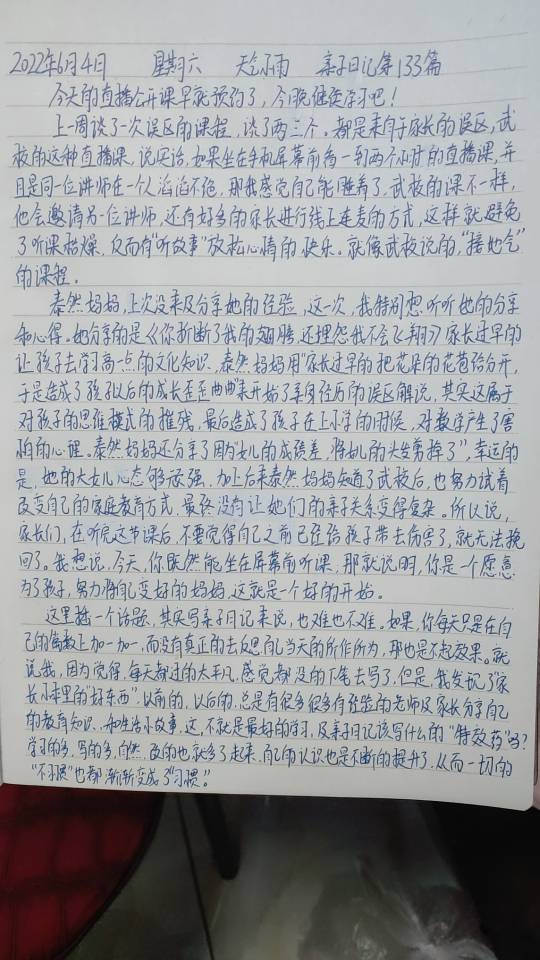 2022年6月4日 星期六 天气小雨 亲子日记第133篇
今天的直播公开课早就预约了，今晚继续学习吧！
上一周谈了一次误区的课程，谈了两三个。都是来自于家长的误区，武
校的这种直播课，说实话，如果坐在手机屏幕前看一到两个小时的直播课，并
且是同一位讲师在一个人滔滔不绝，那我感觉自己能睡着了。武校的课不一样，
他会邀请另一位讲师，还有好多的家长进行线上连麦的方式，这样就避免
了听课枯燥，反而有“听故事”放松心情的快乐。就像武校说的，“接地气”
的课程。
泰然妈妈，上次没来及分享她的经验，这一次，我特别想听听她的分享
和心得。她分享的是《你折断了我的翅膀，还埋怨我不会飞翔》家长过早的
让孩子去学习高一点的文化知识，泰然妈妈用“家长过早的把花朵的花苞给分开，
于是造成了孩子以后的成长歪歪曲曲”来开始了亲身经历的误区解说，其实这属于
对孩子的思维模式的摧残，最后造成了孩子在上小学的时候，对数学产生了害
怕的心理。泰然妈妈还分享了因为“女儿的成绩差，将她的头发剪掉了”，幸运的
是，她的大女儿心态够顽强，加上后来泰然妈妈知道了武校后，也努力试着
改变自己的家庭教育方式，最终没有让她们的亲子关系变得复杂。所以说，
家长们，在听完这节课后，不要觉得自己之前已经给孩子带去伤害了，就无法挽
回了。我想说，今天，你既然能坐在屏幕前听课，那就说明，你是一个愿意
为了孩子，努力将自己变好的妈妈，这就是一个好的开始。
这里插一个话题，其实写亲子日记来说，也难也不难。如果，你每天只是在自
己的篇数上加一加，而没有真正的去反思自己当天的所作所为，那也是不起效果。就
说我，因为觉得，每天都过的太平凡，感觉都没的下笔去写了，但是，我发现了“家
长小课里的“好东西”，以前的，以后的，总是有很多很多有经验的老师及家长分享自己
的教育知识，和生活小故事，这，不就是最好的学习，及亲子日记该写什么的“特效药”吗？
学习的多，写的多，自然，改的也就多了起来，自己的认识也是不断的提升了，从而一切的
“不习惯”也都渐渐变成了“习惯”。